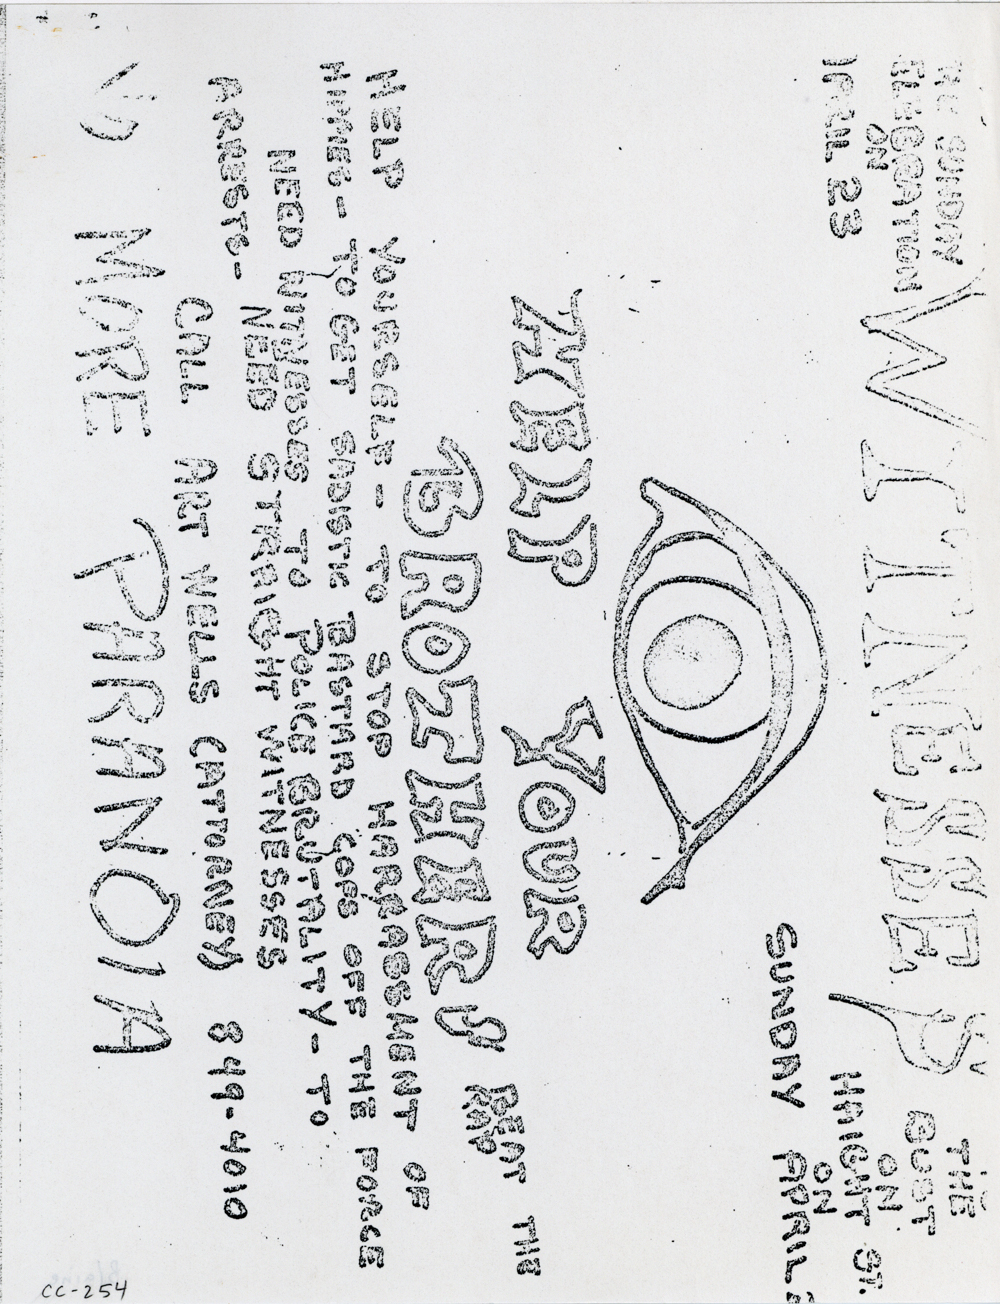 HE SUNDAY
ELEBRATION
ON
APRIL 23
WITNESSES
THE
BUST
ON
HAIGHT ST.
ON
SUNDAY APRIL
HELP YOUR
BROTHERS
BEAT THE
RAP
HELP YOURSELF - TO STOP HARRASSMENT OF
HIPPIES - TO GET SADISTIC BASTARD COPS OFF THE FORCE
NEED WITNESSES TO POLICE BRUTALITY - TO
ARRESTS - NEED STRAIGHT WITNESSES
CALL ART WELLS (ATTORNEY) 849-4010
MORE PARANOIA
CC-254